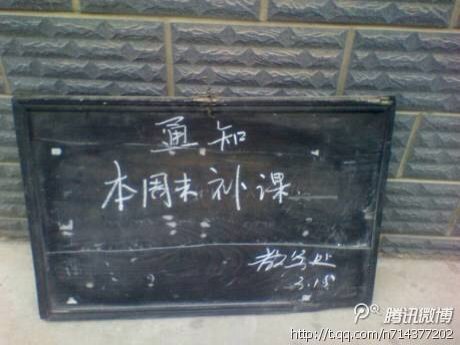 通知
本周末补课
教务处
3.15
腾讯微博
http://t.qq.com/n714377202